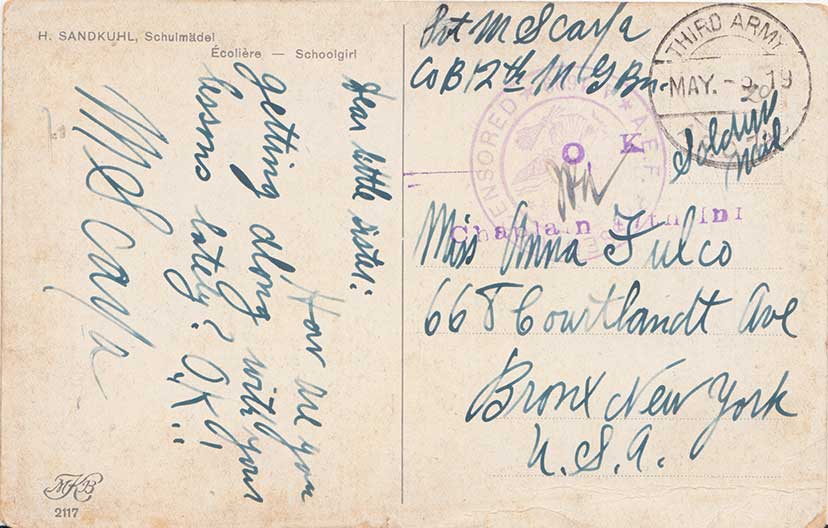 H. SANDKUHL, Schulmädel
Écolière — Schoolgirl
Dear little sister:
How are you
getting along with your
lessons lately? O.K!!
M Scayla
MKB
2117
Pvt M Scayla
Co B 12th M G Bn.
THIRD ARMY
MAY.
19
Soldiers
Mail
CENSORED
A.E.F.
O. K
Chaplain
Miss Anna Fulco
668 Courtlandt Ave
Bronx New York
U. S. A.